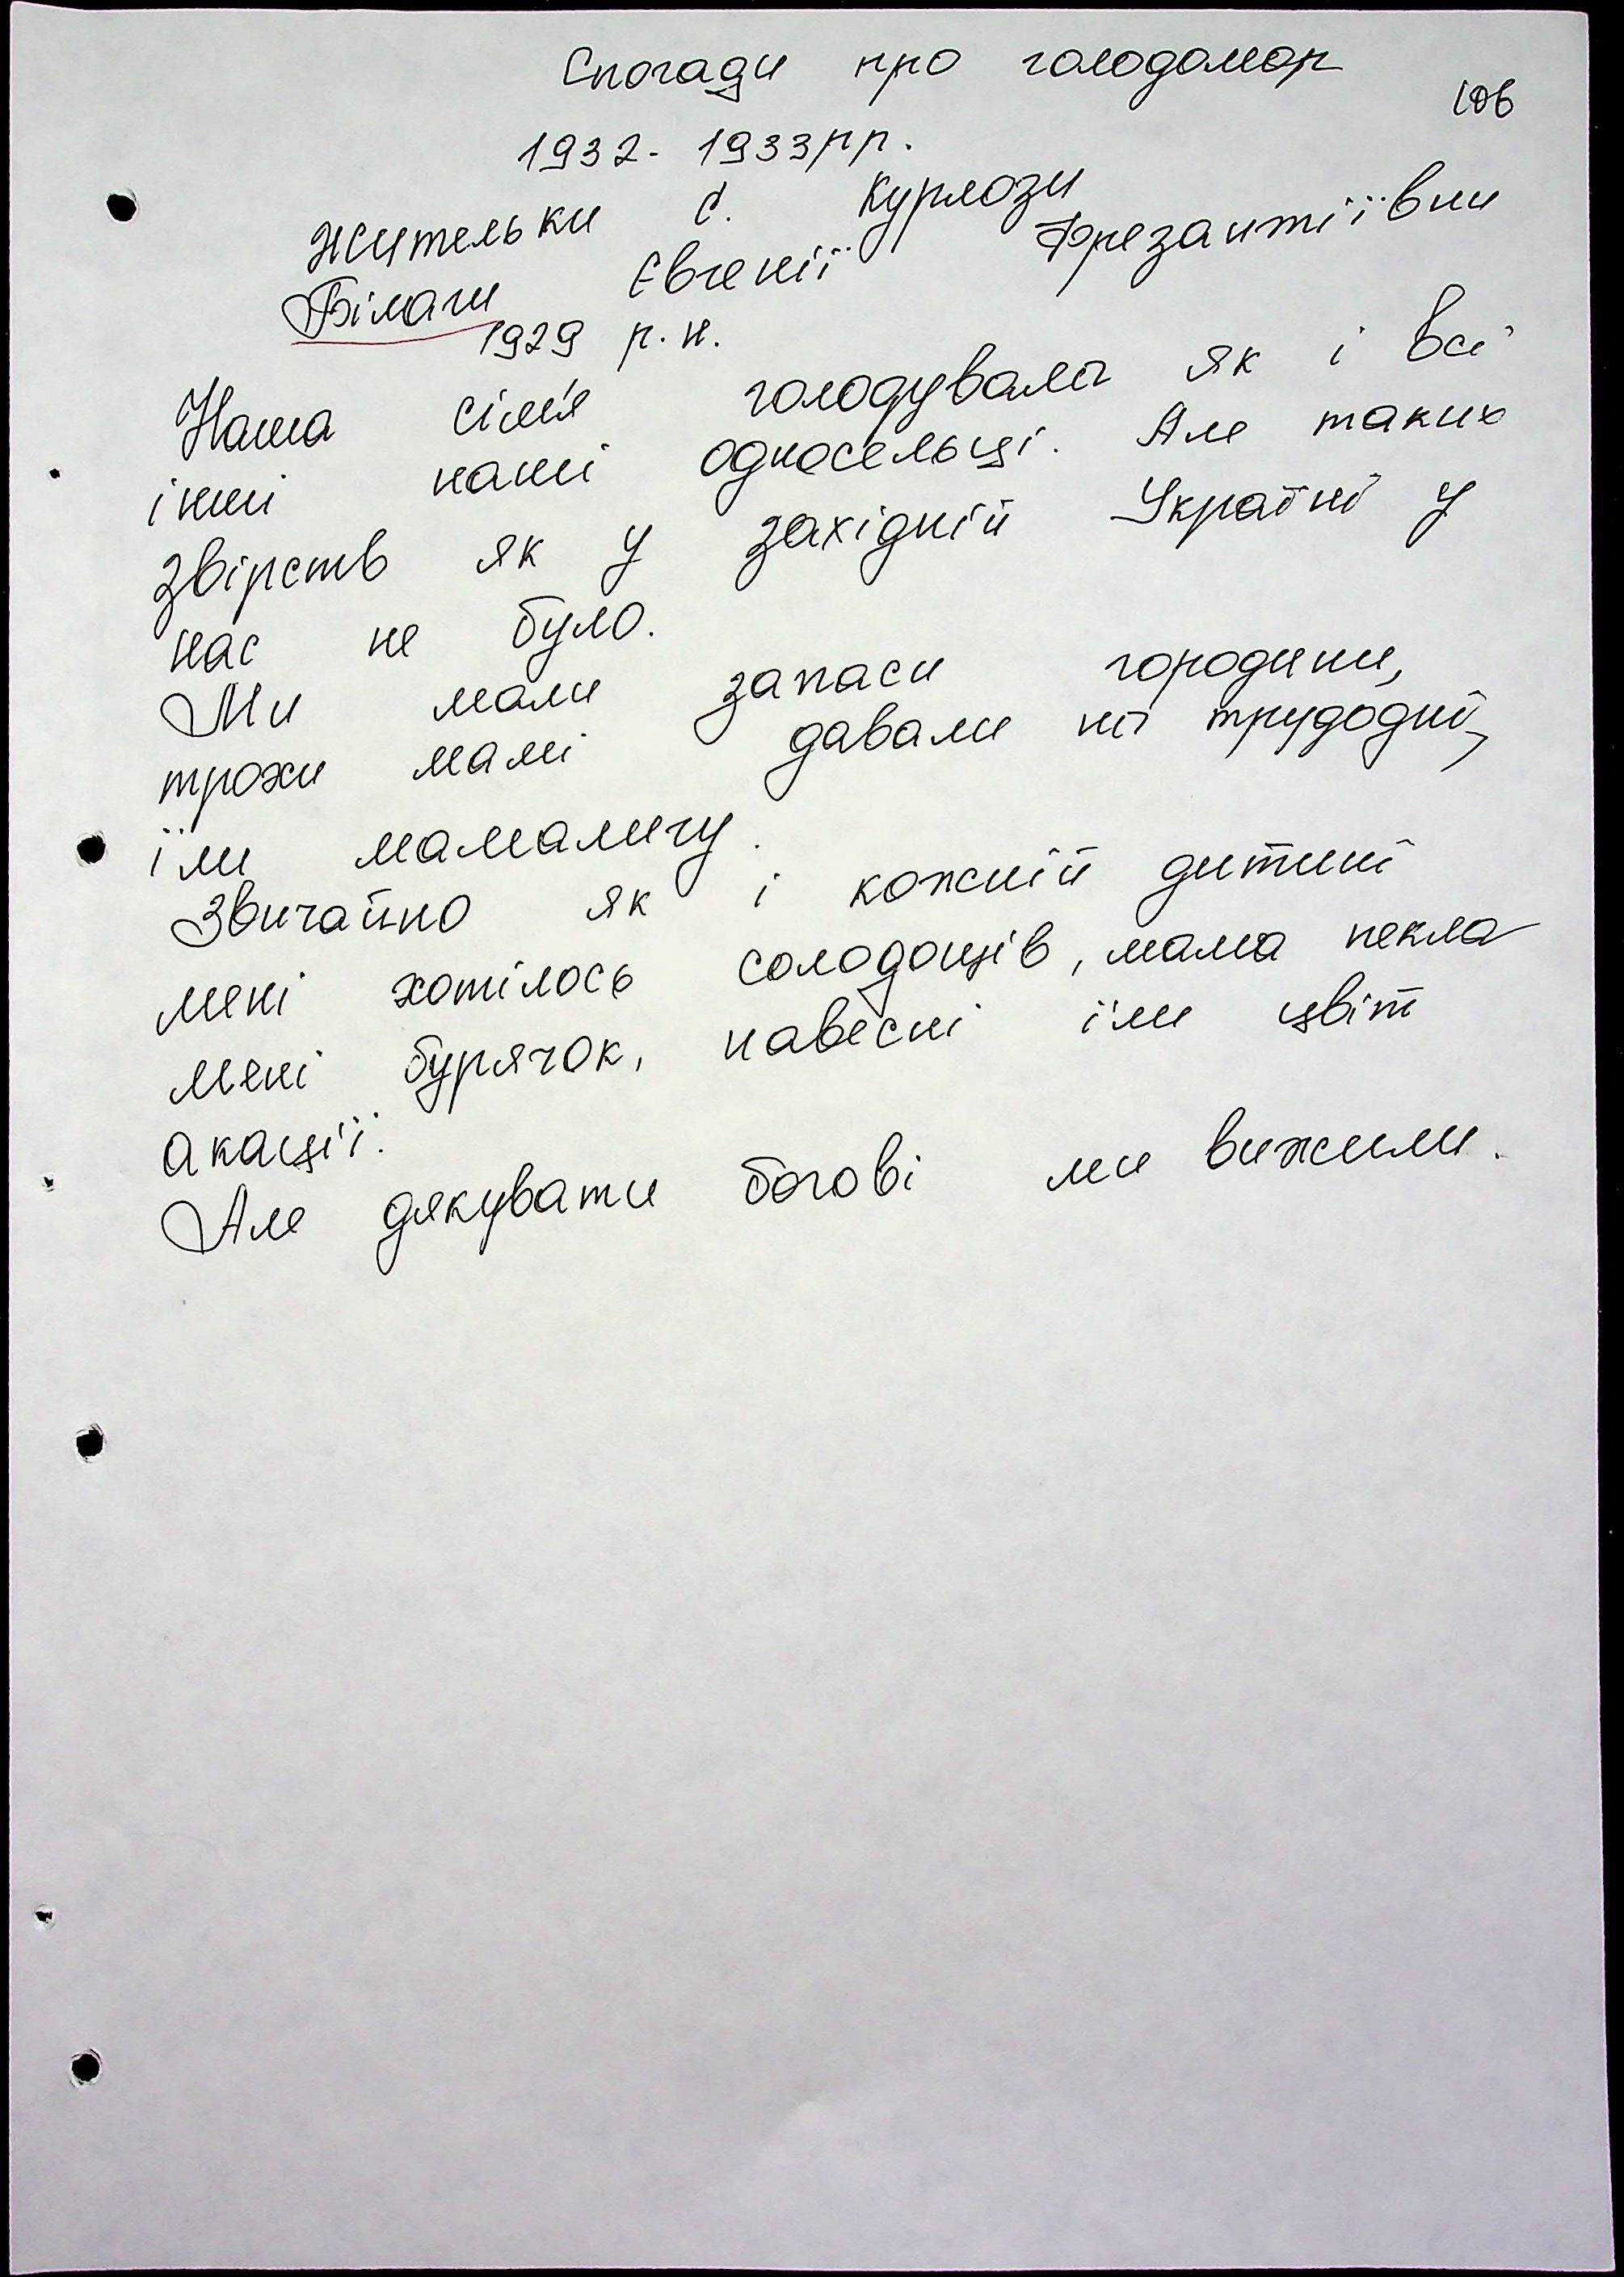 Спогади про голодомор
106
1932-1933рр.
жительки с. Курлози
Білаш Євгенії Фрезантіївни
1929 р.н.
Наша сім'я голодувала як і всі
інші наші односельці. Але таких
звірств як у західній Україні у
нас не було.
Ми мали запаси городини,
трохи мамі давали на трудодні,
їли мамалигу.
Звичайно як і кожній дитині
мені хотілось солодощів, мама пекла
мені бурячок, навесні їли цвіт
акації.
Але дякувати богові ми вижили.